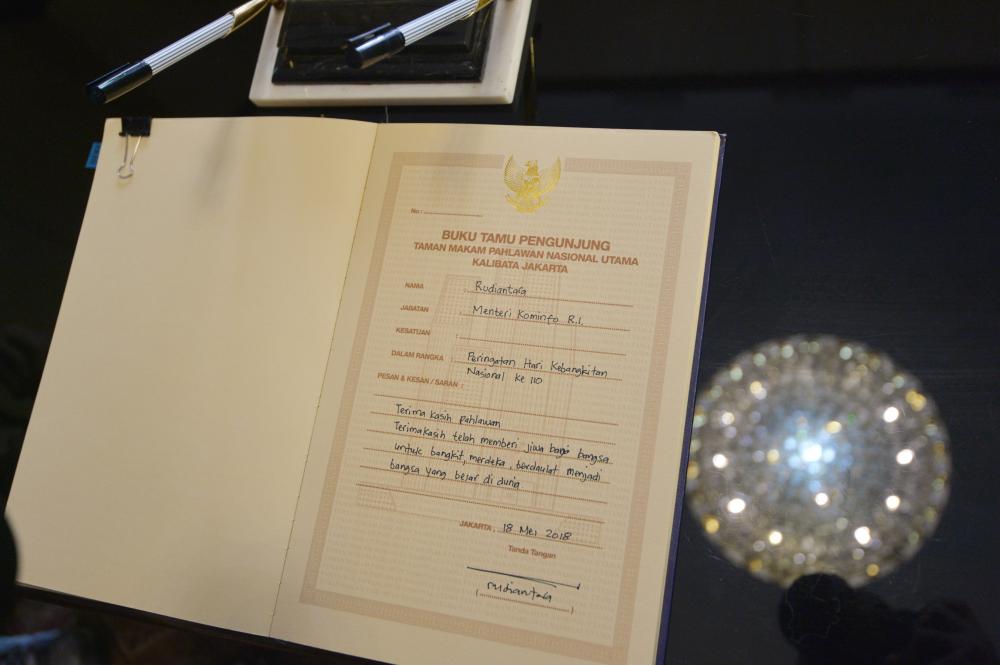 No :
BUKU TAMU PENGUNJUNG
TAMAN MAKAM PAHLAWAN NASIONAL UTAMA
KALIBATA JAKARTA
NAMA : Rudiantara
JABATAN : Menteri Kominfo R.I.
KESATUAN :
DALAM RANGKA : Peringatan Hari Kebangkitan
Nasional ke 110
PESAN & KESAN / SARAN :
Terima kasih pahlawan
Terimakasih telah memberi jiwa bagi bangsa
untuk bangkit, merdeka, berdaulat menjadi
bangsa yang besar di dunia
JAKARTA, 18 Mei 2018
Tanda Tangan
( rudiantara )